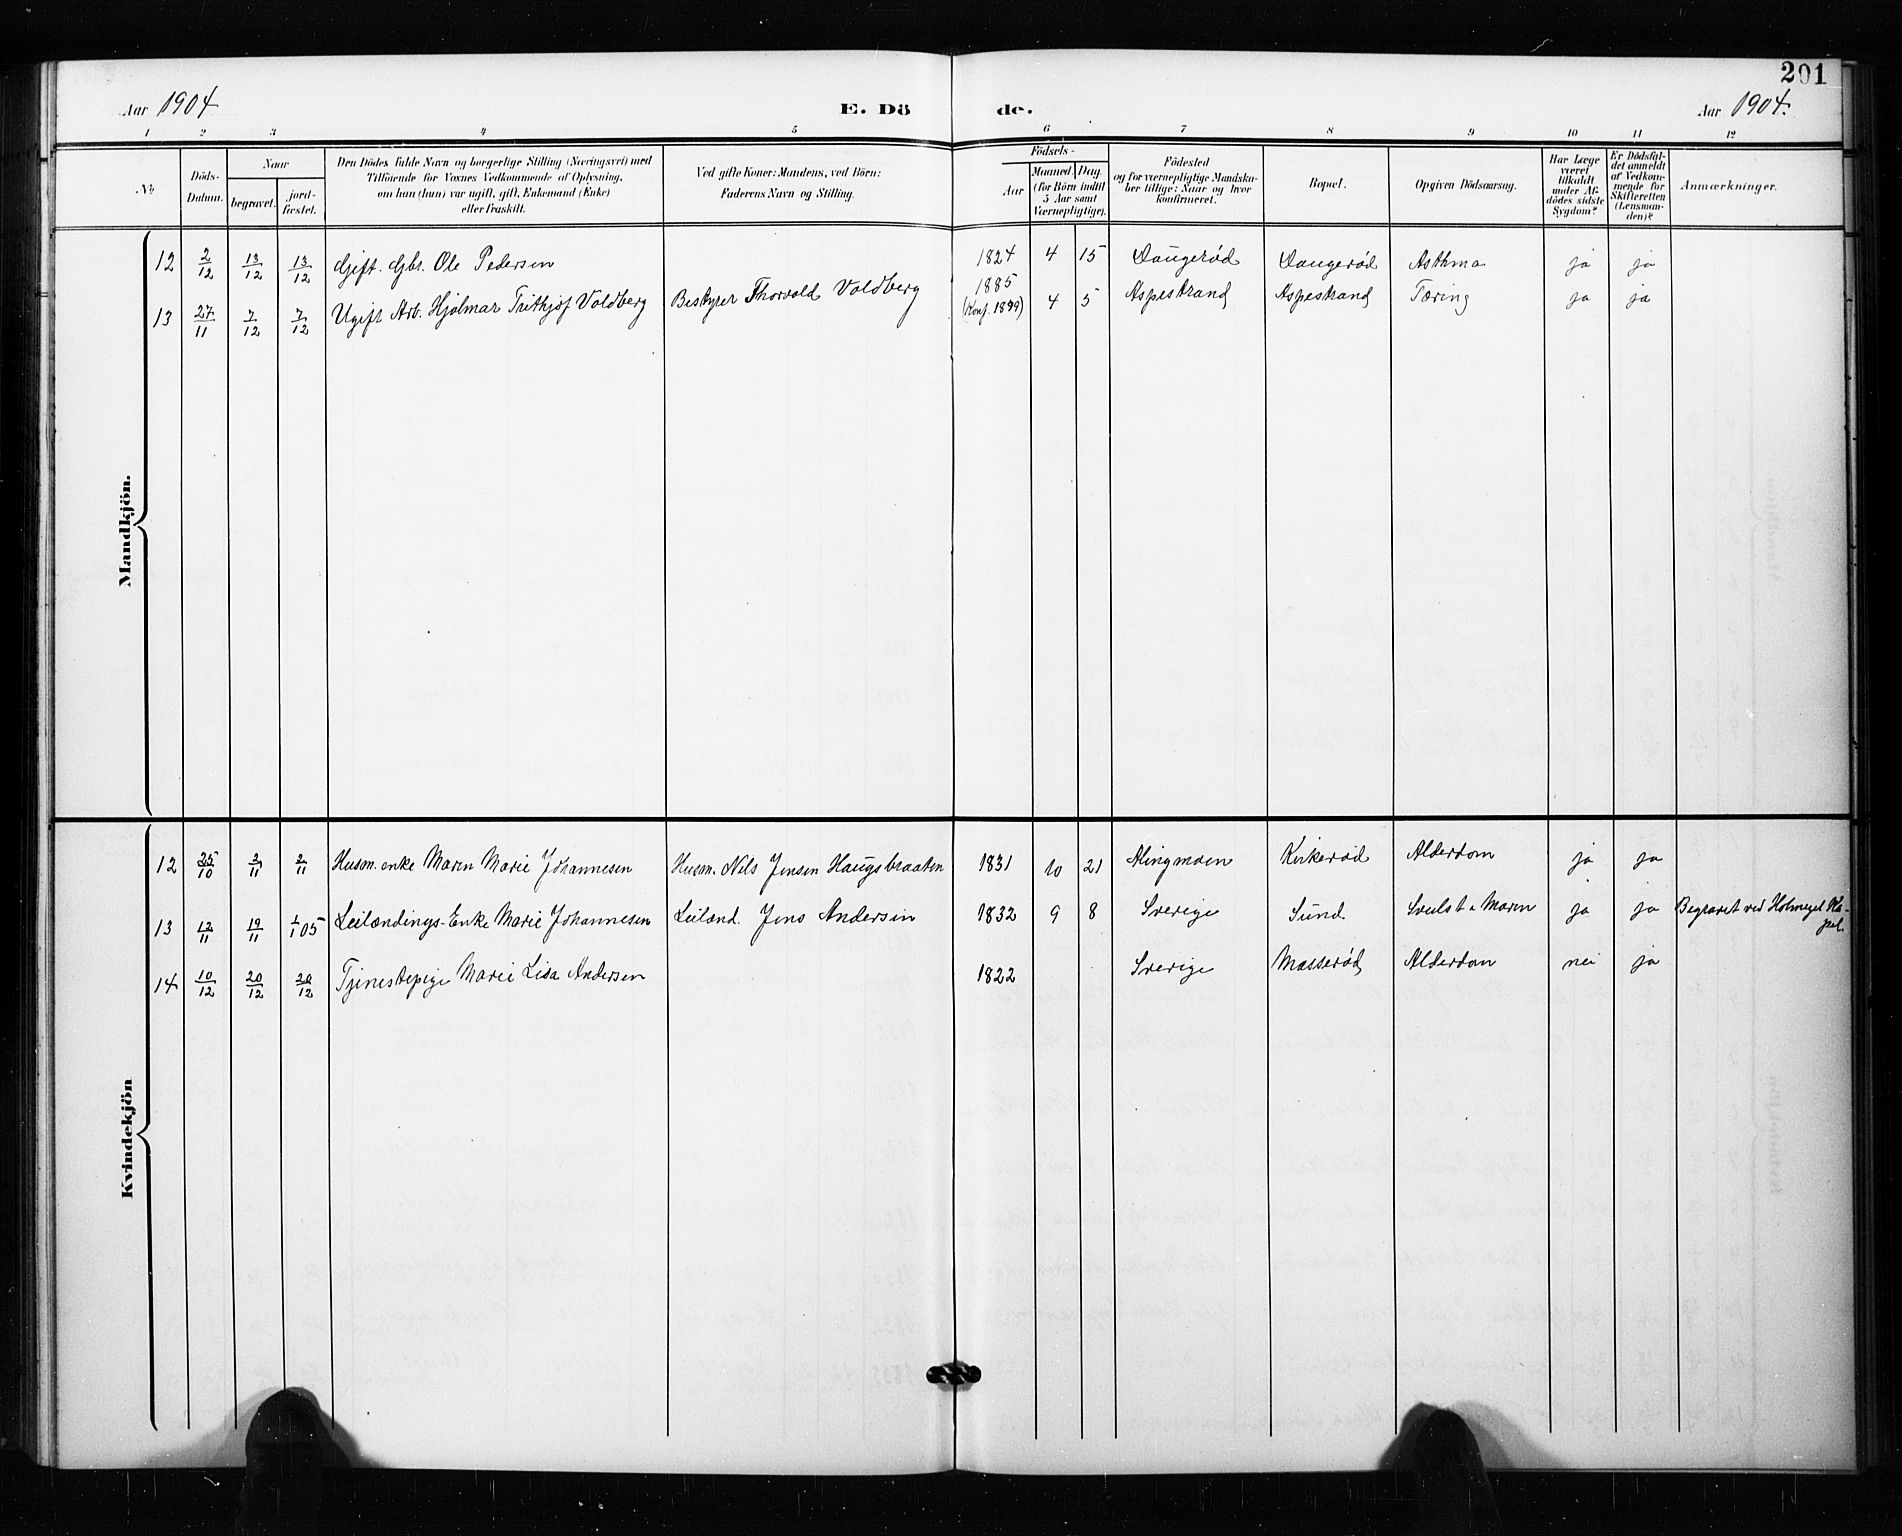 201
Aar 1904. E. Dö de. Aar 1904.
1 2 3 4 5 6 7 8 9 10 11 12
No
Döds-
Datum.
Naar
begravet.
jord-
fæstet.
Den Dödes fulde Navn og borgerlige Stilling (Næringsvei) med
Tilföiende for Voxnes Vedkommende af Oplysning,
om han (hun) var ugift, gift, Enkemand (Enke)
eller fraskilt.
Ved gifte Koner: Mandens, ved Börn:
Faderens Navn og Stilling.
Födsels-
Aar
Maaned. Dag.
(for Börn indtil
5 Aar samt
Værnepligtige).
Födested
og for værnepligtige Mandska-
ber tillige: Naar og hvor
konfirmeret.
Bopæl.
Opgiven Dödsaarsag.
Har Læge
været
tilkaldt
under Af-
dödes sidste
Sygdom?
Er Dödsfal-
det anmeldt
af Vedkom-
mende for
Skifteretten
(Lensman-
den)?
Anmærkninger.
Mandkjön.
12 2/12 13/12 13/12 Gift. Gbr. Ole Pedersen 1824 4 15 Daugerød Daugerød Asthma ja ja
13 27/11 7/12 7/12 Ugift Arb. Hjalmar Frithjof Voldberg Bestyrer Thorvald Voldberg 1885 (Konf. 1899) 4 5 Aspestrand Aspestrand Tæring ja ja
Kvindekjön
12 25/10 2/11 2/11 Husm. enke Maren Marie Johannesen Husm. Nils Jensen Haugsbraaten 1831 10 21 Kirkerød Alderdom ja ja
13 12/11 19/11 1/1 05 Leilændings-Enke Marie Johannesen Leilænd. Jens Andersen 1832 9 8 Sverige Sund Svulst i Maven ja ja Begravet ved Holmegil Ka-
pel.
14 10/12 20/12 20/12 Tjenestepige Marie Lisa Andersen 1822 Sverige Masserød Alderdom nei ja